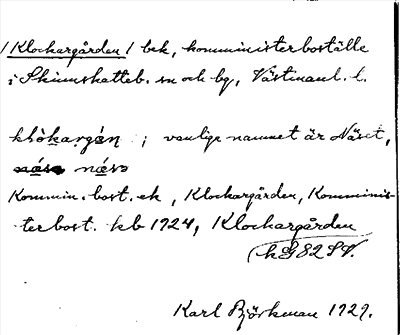 / Klockargården / bek, komministerboställe
i Skinnskatteb. sn och bg, Västmanl. l.
klòkargáṇ ; vanliga namnet är Näset,
næ̀sə
Kommin. bost. ek, Klockargården, Komminis-
terbost. kb 1924, Klockargården
hG 82 SV.
Karl Björkman 1929.